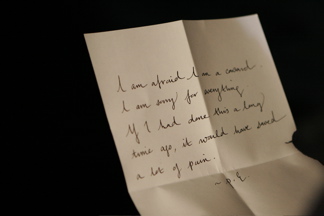 I am afraid I'm a coward.
I am sorry for everything
If I had done this a long
time ago, it would have saved
a lot of pain.
- P.E.